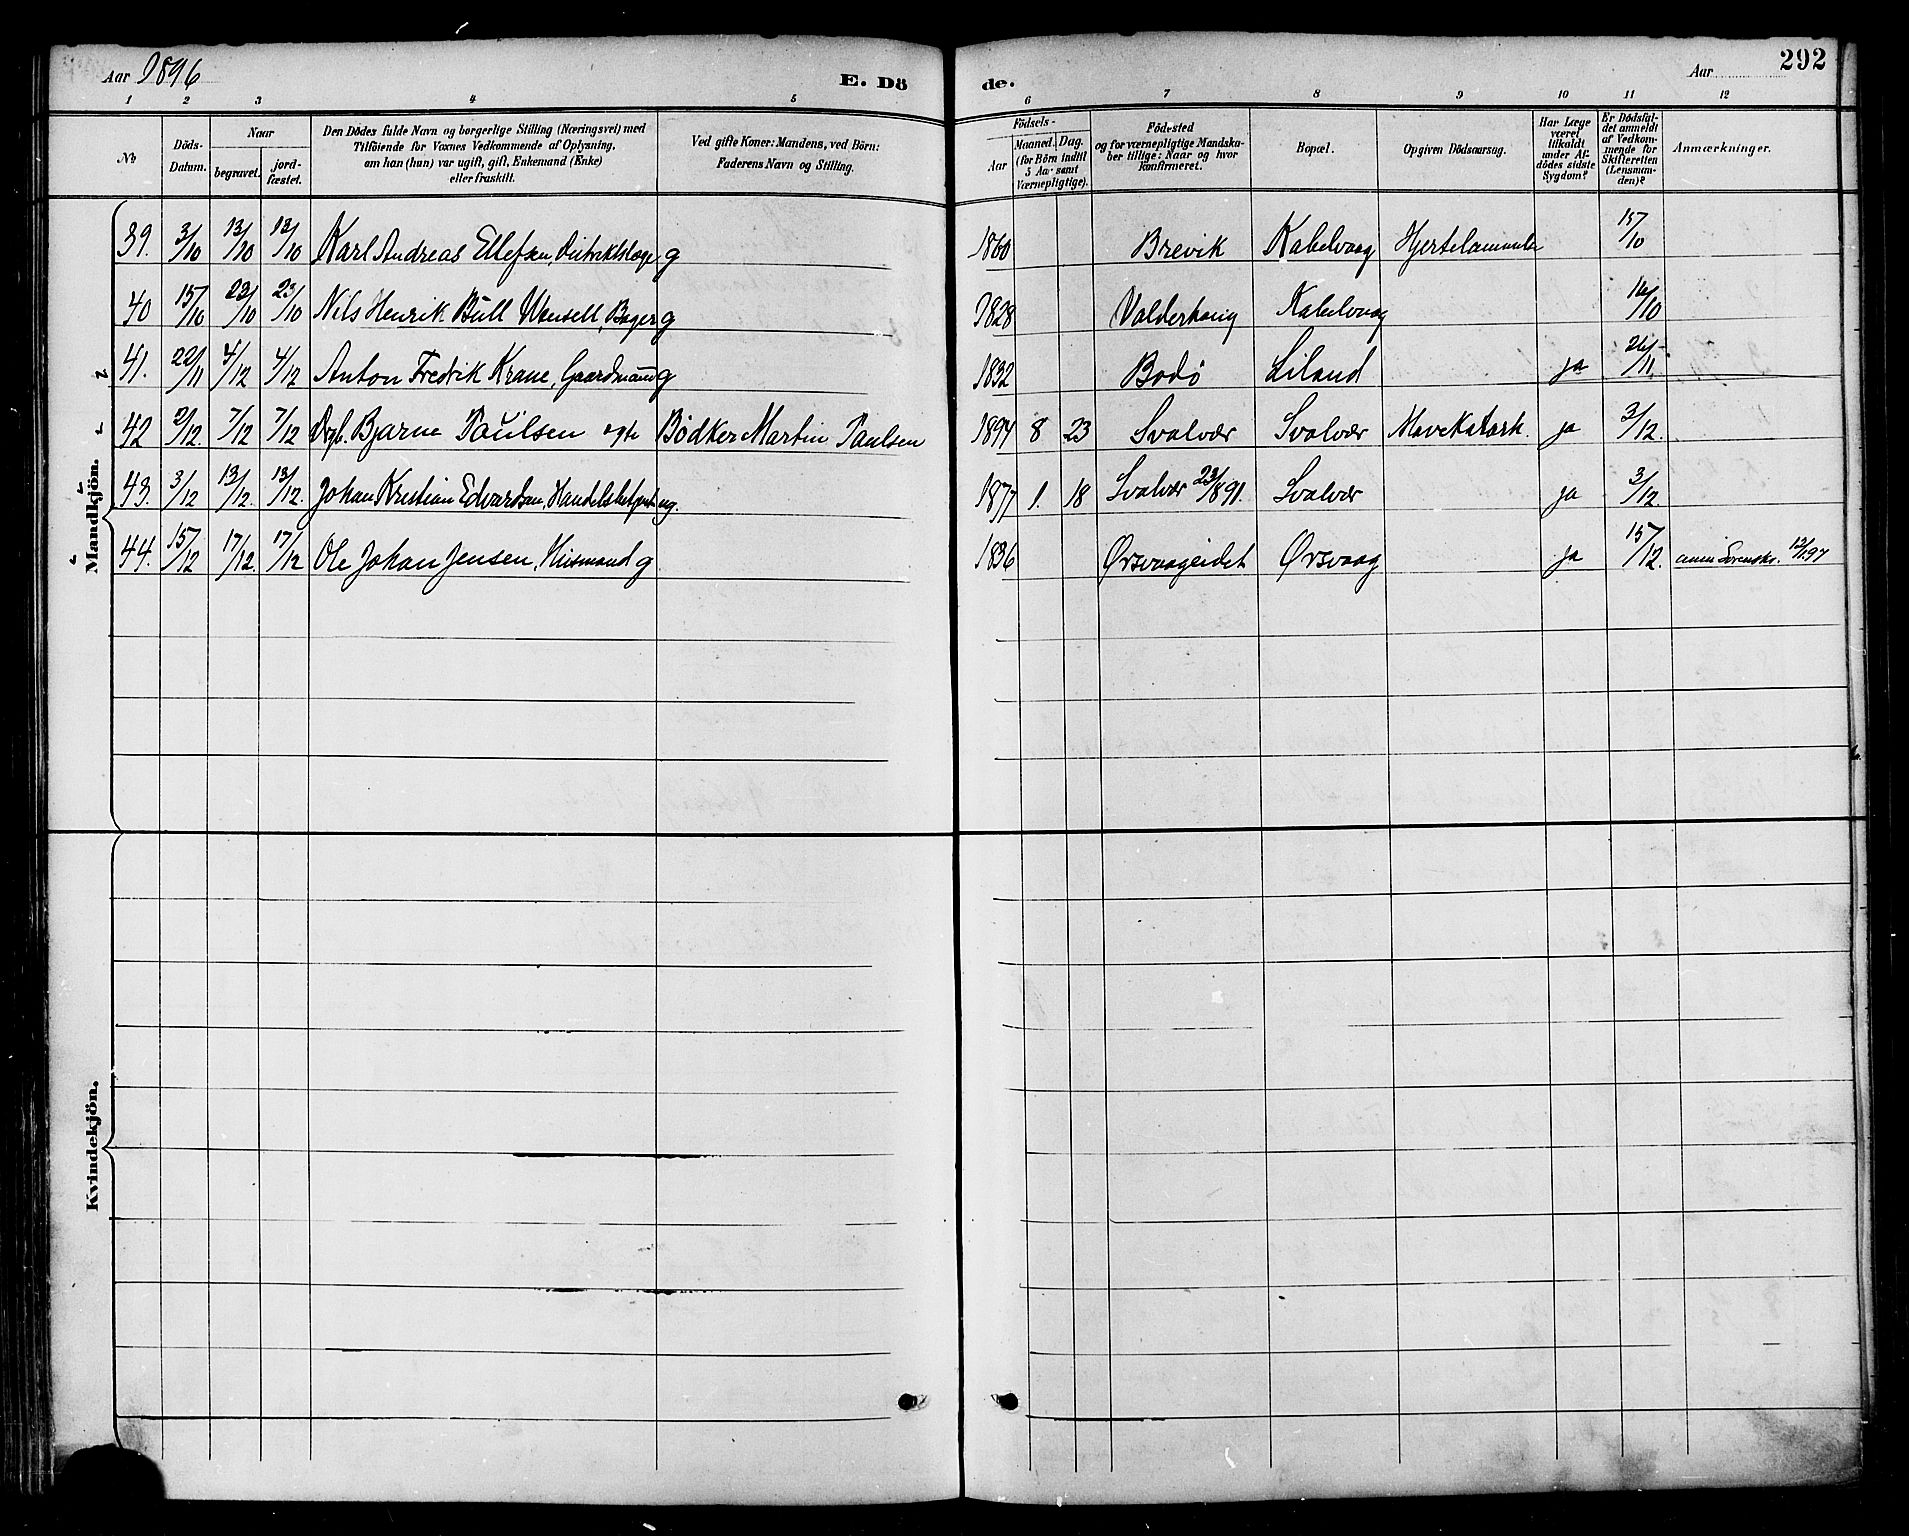 Aar 1896 E. Dö de. Aar 292
1 2 3 4 5 6 7 8 9 10 11 12
No
Döds-Datum.
Naar
begravet. jordfæstet.
Den Dödes fulde Navn og borgerlige Stilling (Næringsvei) med
Tilföiende for Voxnes Vedkommende af Oplysning,
om han (hun) var ugift, gift, Enkemand (Enke)
eller fraskilt.
Ved gifte Koner: Mandens, ved Börn:
Faderens Navn og Stilling.
Födsels-
Aar Maaned. Dag.
(for Börn indtil 5 Aar samt Værnepligtige).
Födested
og for værnepligtige Mandskaber tillige: Naar og hvor konfirmeret.
Bopæl.
Opgiven Dödsaarsag.
Har Læge været tilkaldt under Afdödes sidste Sygdom?
Er Dödsfaldet anmeldt af Vedkommende for Skifteretten (Lensmanden)?
Anmærkninger.
Mandkjön.
39. 3/10 13/10 13/10 Karl Andreas Ellefsen, Distriktslæge g 1860 Brevik Kabelvaag Hjertelammelse 15/10
40 15/10 23/10 23/10 Nils Henrik Bull Bager g 1828 Valderhaug Kabelvaag 16/10
41. 22/11 4/12 4/12 Anton Fredrik Krane, Gaardmand g 1832 Bodø Liland ja 26/11
42 2/12. 7/12 7/12 Drgb. Bjarne Paulsen egte Bødker Martin Paulsen 1894 8 23 Svolvær Svolvær Mavekatarh. ja 3/12.
43. 3/12 13/12. 13/12. Johan Kristian Edvardsen, Handelsbetjent ug. 1877 1. 18 Svolvær 23/8 91. Svolvær ja 3/12.
44. 15/12 17/12. 17/12 Ole Johan Jensen, Husmand g 1836 Ørsvaageidet Ørsvaag ja 15/12. anm Sorensko. 12/1.97
Kvindekjön.